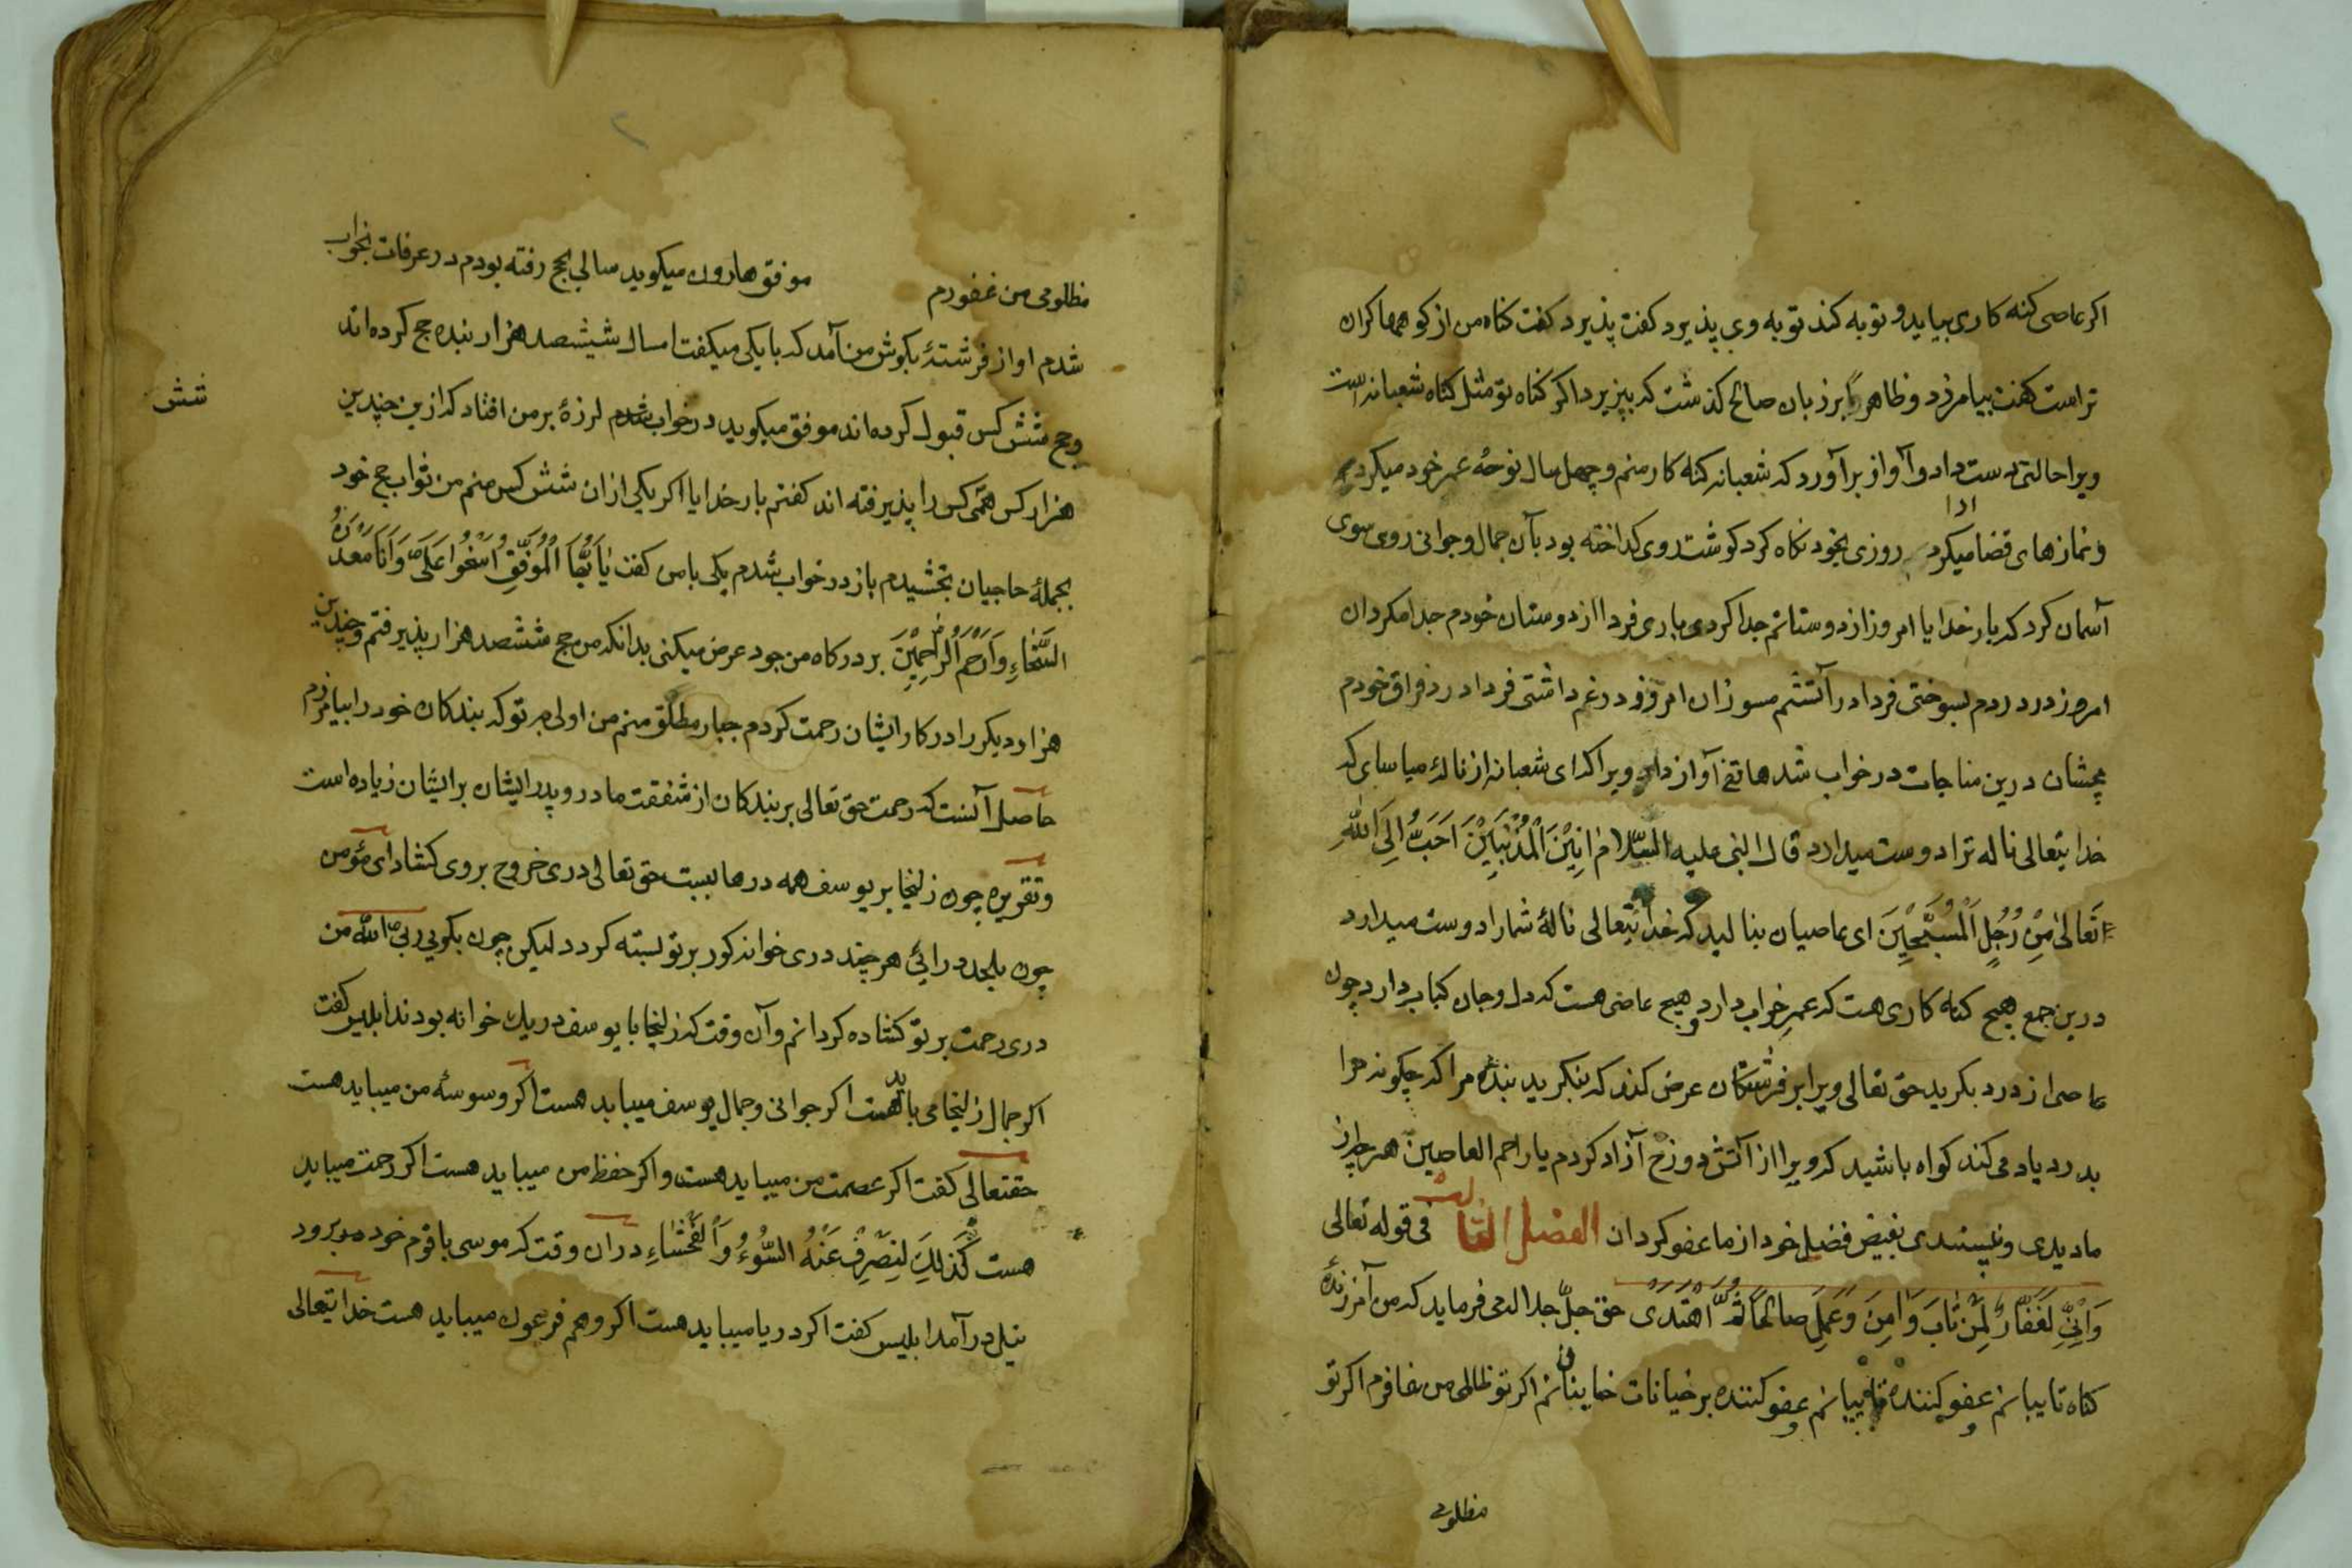 اکر عاصی کنه کاری بیاید و توبه کند توبه وی پذیرد کفت پذیرد کفت کناه من از کوهها کران
تراست کفت بیامرزد و ظاهر بر زبان صالح کذشت که بپزیرد اکر کناه تو مثل کناه شعبانه است
ویرا حالتی دست داد و آواز برآورد که شعبانه کنه کار منم و چهل سال نوحه عمر خود میکرد
و نمازهای قضا میکرد ادا روزی بخود نکاه کرد کوشت روی کداخته بود بآن جمال و جوانی روی سوی
آسمان کرد که بار خدایا امروز از دوستانم جدا کردی باری فردا از دوستان خودم جدا مکردان
امروز در دردم بسوختی فردا در آتشم مسوزان امروز در غم داشتی فردا در فراق خودم
مچشان درین مناجات در خواب شد هاتفی آواز داد ویرا کدای شعبانه از ناله میاسای که
خدایتعالی ناله ترا دوست میدارد قال النبی علیه السّلام اَنِیْنَ الْمُذْنِبِیْنَ اَحَبُّ اِلَی اللّٰهِ
تَعَالیٰ مِنْ زُجُلِ الْمُسَبِّحِیْنَ ای عاصیان بنالید که خدایتعالی نالهٔ شما را دوست میدارد
درین جمع هیچ کناه کاری هست که عمر خراب دارد و هیچ عاصی هست که دل و جان کباب دارد چون
عاصی از درد بکرید حق تعالی ویرا بر فرشتکان عرض کند که بنکرید بندهٔ مرا که چکونه مرا
بدرد یاد می کند کواه باشید که ویرا از آتش دوزخ آزاد کردم یا راحم العاصین هرچه از
ما دیدی و نپسندی بفیض فضل خود از ما عفو کردان الفصل الثالث فی قوله تعالی
وَاِنِّی لَغَفَّارٌ لِمَنْ تَابَ وَاٰمَنَ وَعَمِلَ صَالِحًا ثُمَّ اهْتَدَیٰ حق جلّ جلاله می فرماید که من آمرزندهٔ
کناه تایبانم عفو کننده تایبانم و عفو کننده بر خیانات خاینانم اکر تو ظالمی من غافرم اکر تو
مظلومی
مظلومی من غفورم موفق هارون میکوید سالی بحج رفته بودم در عرفات بخواب
شدم اواز فرشتهٔ بکوش من آمد که با یکی میکفت امسال شیشصد هزار بنده حج کرده اند
وحج شش کس قبول کرده اند موفق میکوید در خواب شدم لرزهٔ بر من افتاد که ازین چندین
شش
هزار کس همی کس را پذیرفته اند کفتم بار خدایا اکر یکی از ان شش کس منم من ثواب حج خود
بجملهٔ حاجیان بخشیدم باز در خواب شدم یکی با من کفت یٰاَیُّهَا الْمُوَفَّقِ اَسْغُوا عَلَیَّ وَاَنَا مَعْدَنُ
السَّخَاءِ وَاَرْحَمُ الرّٰحِمِیْنَ بر درکاه من جود عرض میکنی بدانکه من حج ششصد هزار پذیرفتم وچندین
هزار دیکر را در کار ایشان رحمت کردم جبار مطلق منم من اولی تر که بندکان خود را بیامرزم
حاصل آنست که رحمت حق تعالی بر بندکان از شفقت مادر و پدر ایشان بر ایشان زیاده است
وتقریره چون زلیخا بر یوسف همه درها ببست حق تعالی دری خروج بروی کشاد ای مؤمن
چون بلحد درائی هر چند دری خوانه کور بر تو بسته کردد لیکن چون بکویی ربی اللّٰه من
دری رحمت بر تو کشاده کردانم وآن وقت که زلیخا با یوسف در یک خوانه بودند ابلیس کفت
اکر جمال زلیخا می باید هست اکر جوانی وجمال یوسف میباید هست اکر وسوسهٔ من میباید هست
حقتعالی کفت اکر عصمت من میباید هست واکر حفظ من میباید هست اکر رحمت میباید
هست کَذٰلِکَ لِنَصْرِفَ عَنْهُ السُّوْءَ وَالْفَحْشَاءِ در ان وقت که موسی با قوم خود برود
نیل درآمد ابلیس کفت اکر دریا میباید هست اکر وهم فرعون میباید هست خدایتعالی